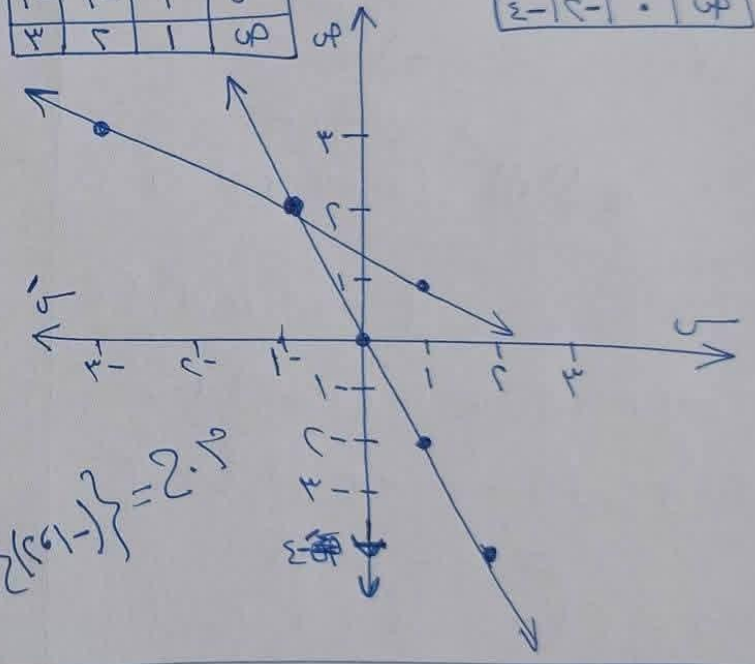 ص | ٠ | -٢ | -٤
ص
١
٢
٣
ص
٣
٢
١
سَ -٣ -٢ -١ ١ ٢ ٣ س
-١
-٢
-٣
-٤
م.ح = {(-١، ٢)}